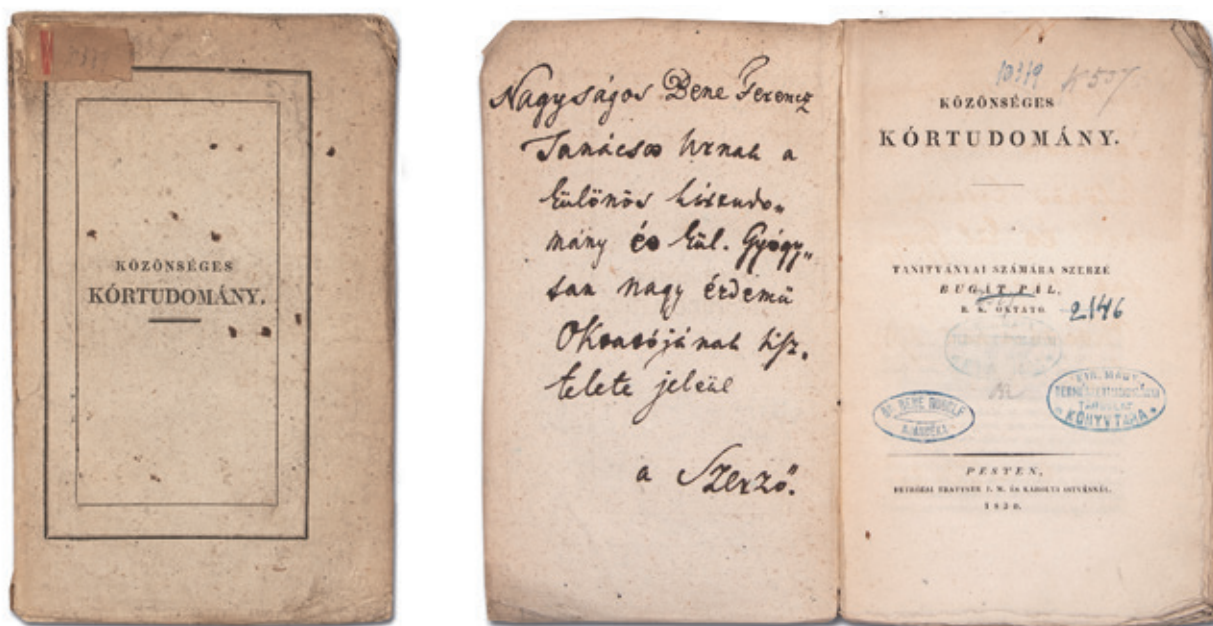 KÖZÖNSÉGES
KÓRTUDOMÁNY.
Nagyságos Bene Ferencz
Tanácsos Urnak a
különös kórtudo„
mány és kül. Gyógy„
tan nagy érdemű
Oktatójának tisz„
telete jeléül
a Szerző.
10319
KÖZÖNSÉGES
KÓRTUDOMÁNY.
TANITVÁNYAI SZÁMÁRA SZERZÉ
BUGÁT PÁL,
R. K. OKTATÓ.
2146
Dr. BENE RUDOLF
AJÁNDÉKA
KIR. MAGY.
TERMÉSZETTUDOMÁNYI
TÁRSULAT
KÖNYVTÁRA
PESTEN,
PETRÓZAI TRATTNER J. M. ÉS KÁROLYI ISTVÁNNÁL.
1830.